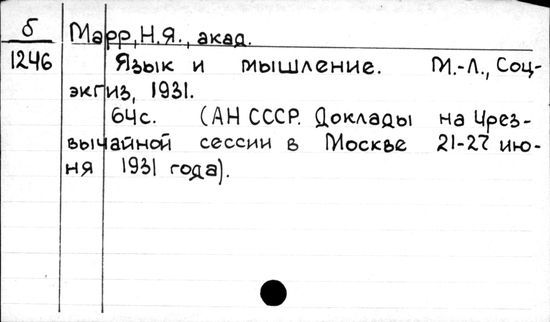 б
1246
Марр, Н.Я., акад.
Язык и мышление. М.-Л., Соц-
экгиз, 1931.
64с. (АН СССР. Доклады на Чрез-
вычайной сессии в Москве 21-27 ию-
ня 1931 года).